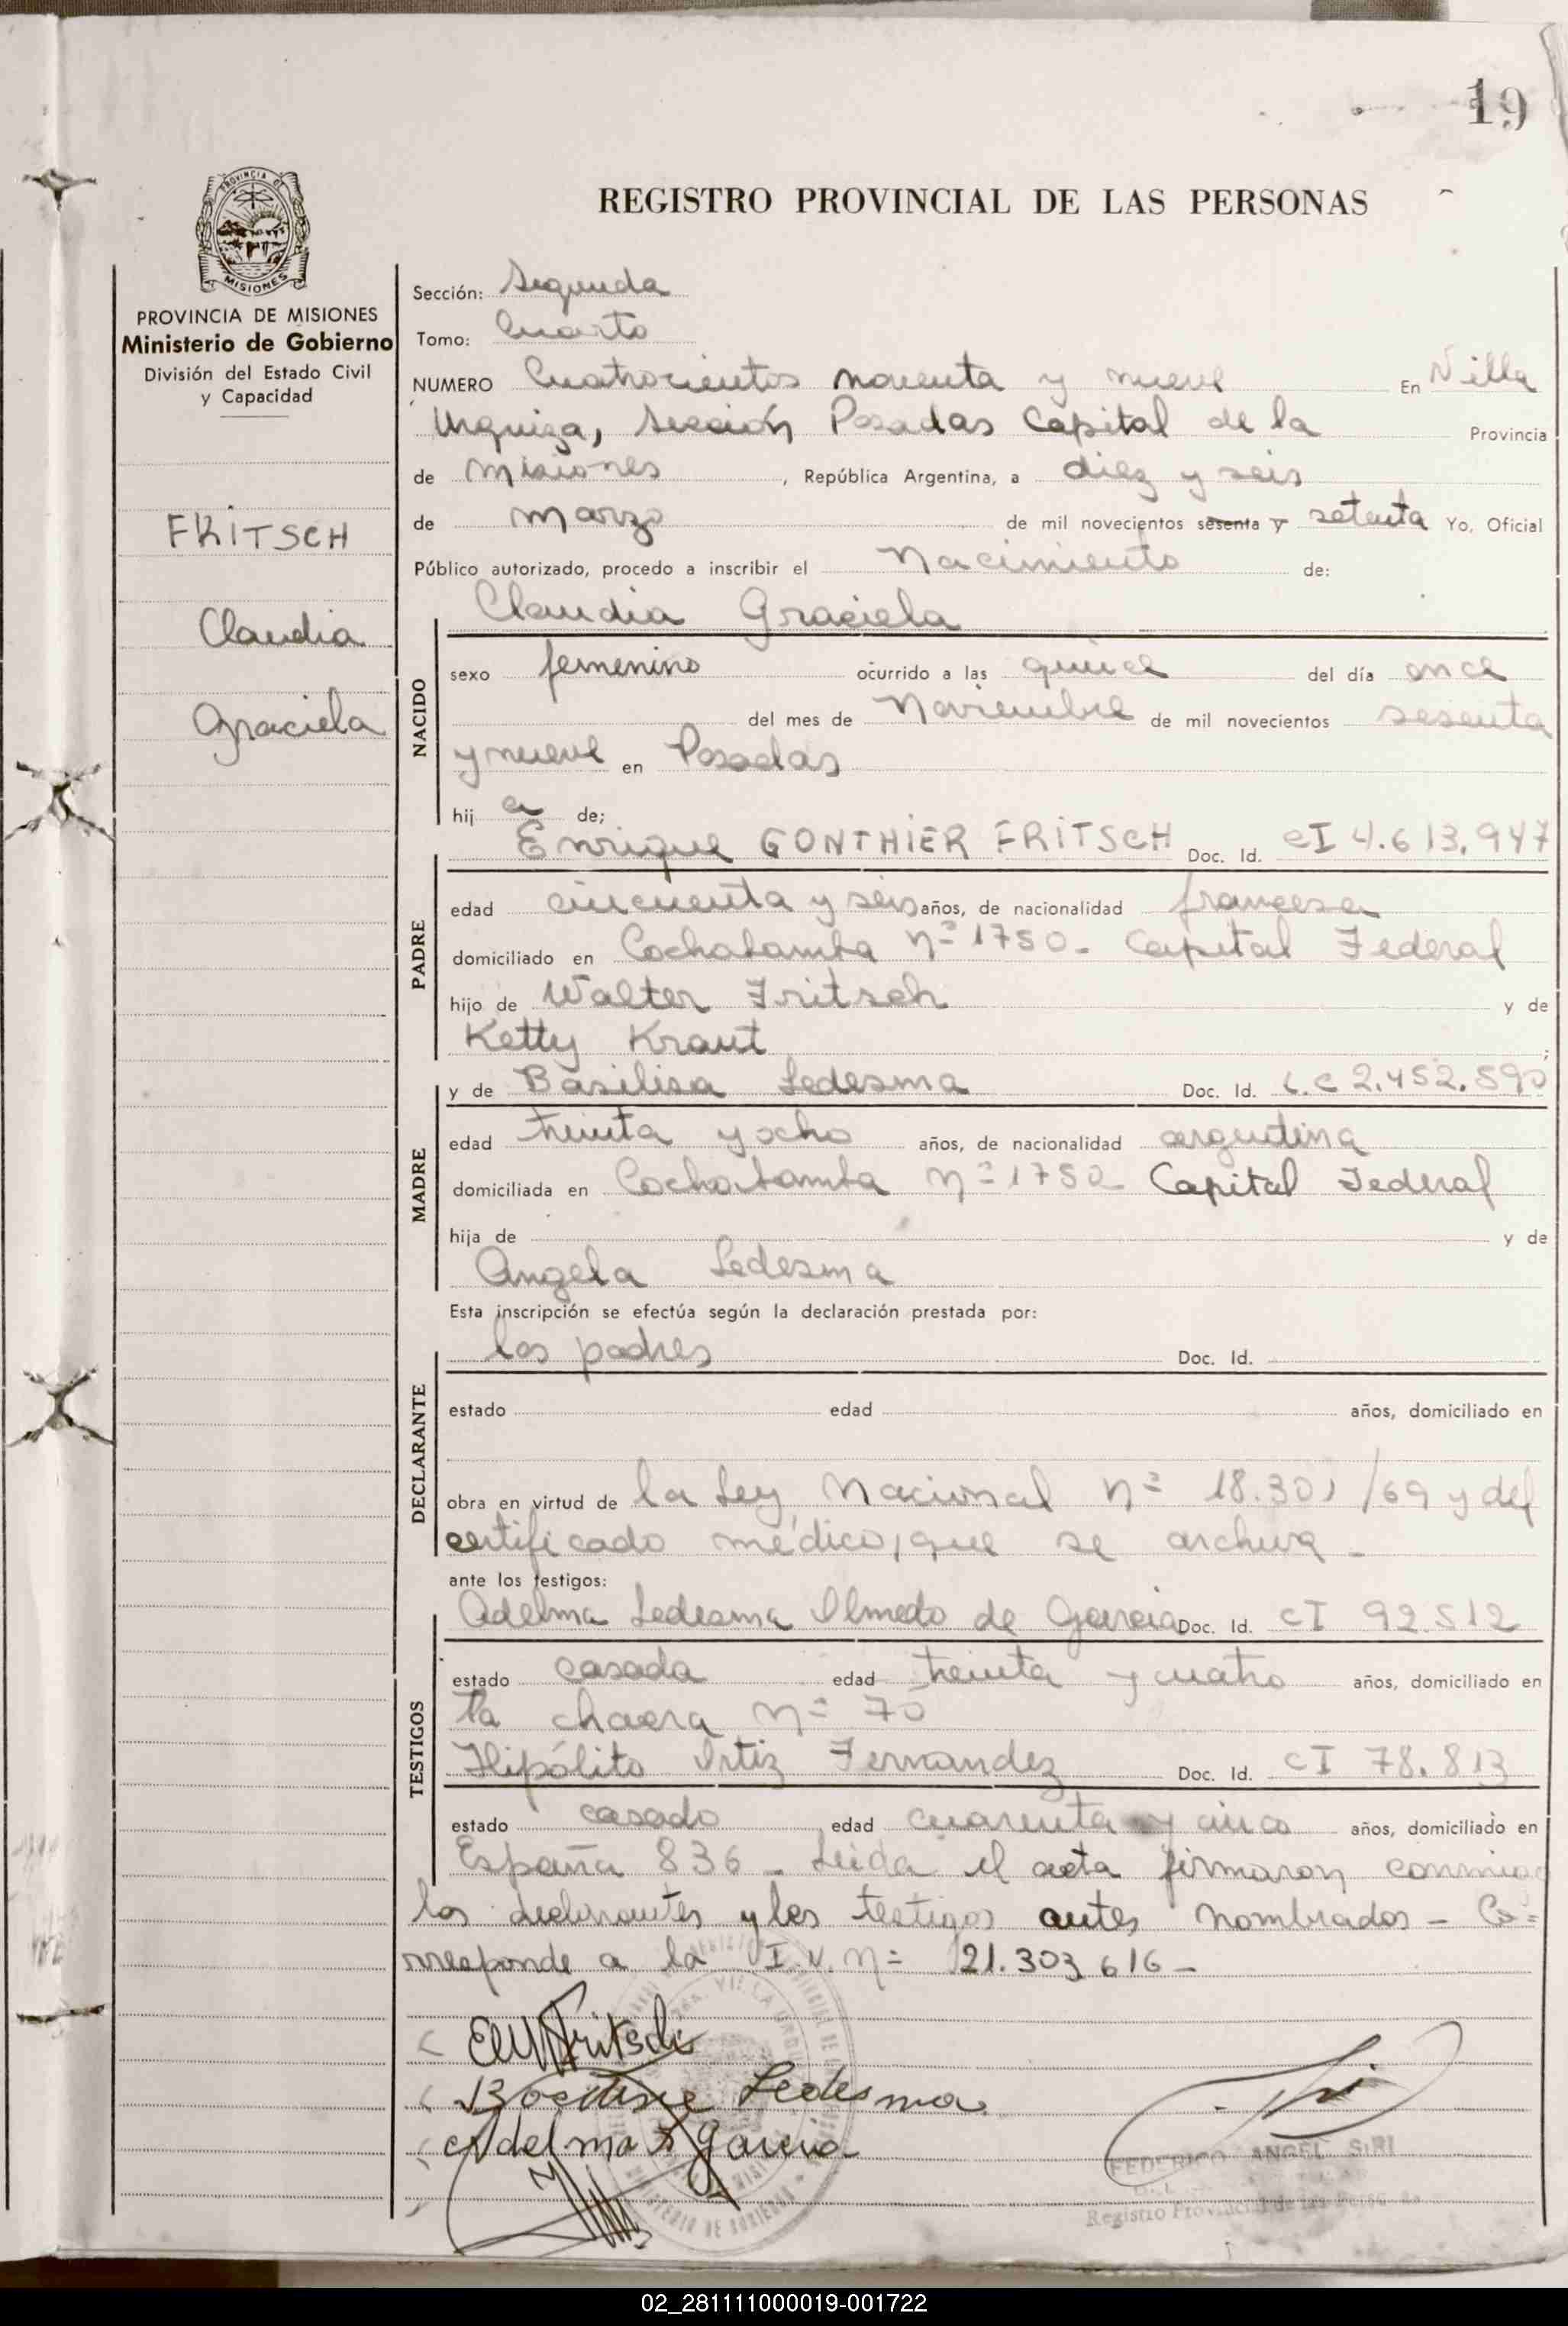 19
REGISTRO PROVINCIAL DE LAS PERSONAS
PROVINCIA DE MISIONES
MISIONES
PROVINCIA DE MISIONES
Ministerio de Gobierno
División del Estado Civil
y Capacidad
FRITSCH
Claudia
Graciela
Sección: Segunda
Tomo: Cuarto
NUMERO Cuatrocientos noventa y nueve En Villa
Urquiza, Sección Posadas Capital de la Provincia
de Misiones, República Argentina, a diez y seis
de marzo de mil novecientos sesenta y setenta Yo, Oficial
Público autorizado, procedo a inscribir el Nacimiento de:
Claudia Graciela
NACIDO
sexo femenino ocurrido a las quince del día once
del mes de Noviembre de mil novecientos sesenta
y nueve en Posadas
hij a de;
Enrique GONTHIER FRITSCH Doc. Id. CI 4.613.947
PADRE
edad cincuenta y seis años, de nacionalidad francesa
domiciliado en Cochabamba nº 1750- Capital Federal
hijo de Walter Fritsch y de
Ketty Kraut ;
y de Basilisa Ledesma Doc. Id. L.C 2.452.590
MADRE
edad treinta y ocho años, de nacionalidad argentina
domiciliada en Cochabamba nº 1750 Capital Federal
hija de y de
Angela Ledesma
Esta inscripción se efectúa según la declaración prestada por:
los padres Doc. Id.
DECLARANTE
estado edad años, domiciliado en
obra en virtud de la Ley Nacional nº 18.301/69 y del
certificado médico, que se archiva -
ante los testigos:
Adelma Ledesma Olmedo de Garcia Doc. Id. CI 92.512
TESTIGOS
estado casada edad treinta y cuatro años, domiciliado en
la chacra nº 70
Hipólito Ortiz Fernandez Doc. Id. CI 78.813
estado casado edad cuarenta y cinco años, domiciliado en
España 836 - Leída el acta firmaron conmigo
los declarantes y los testigos antes nombrados - Co=
rresponde a la I.N. nº 21.303.616 -
Fritsch
Basilisa Ledesma
Adelma Garcia
FEDERICO ANGEL SIRI
Registro Provincial de las Personas
MINISTERIO DE GOBIERNO
02_281111000019-001722